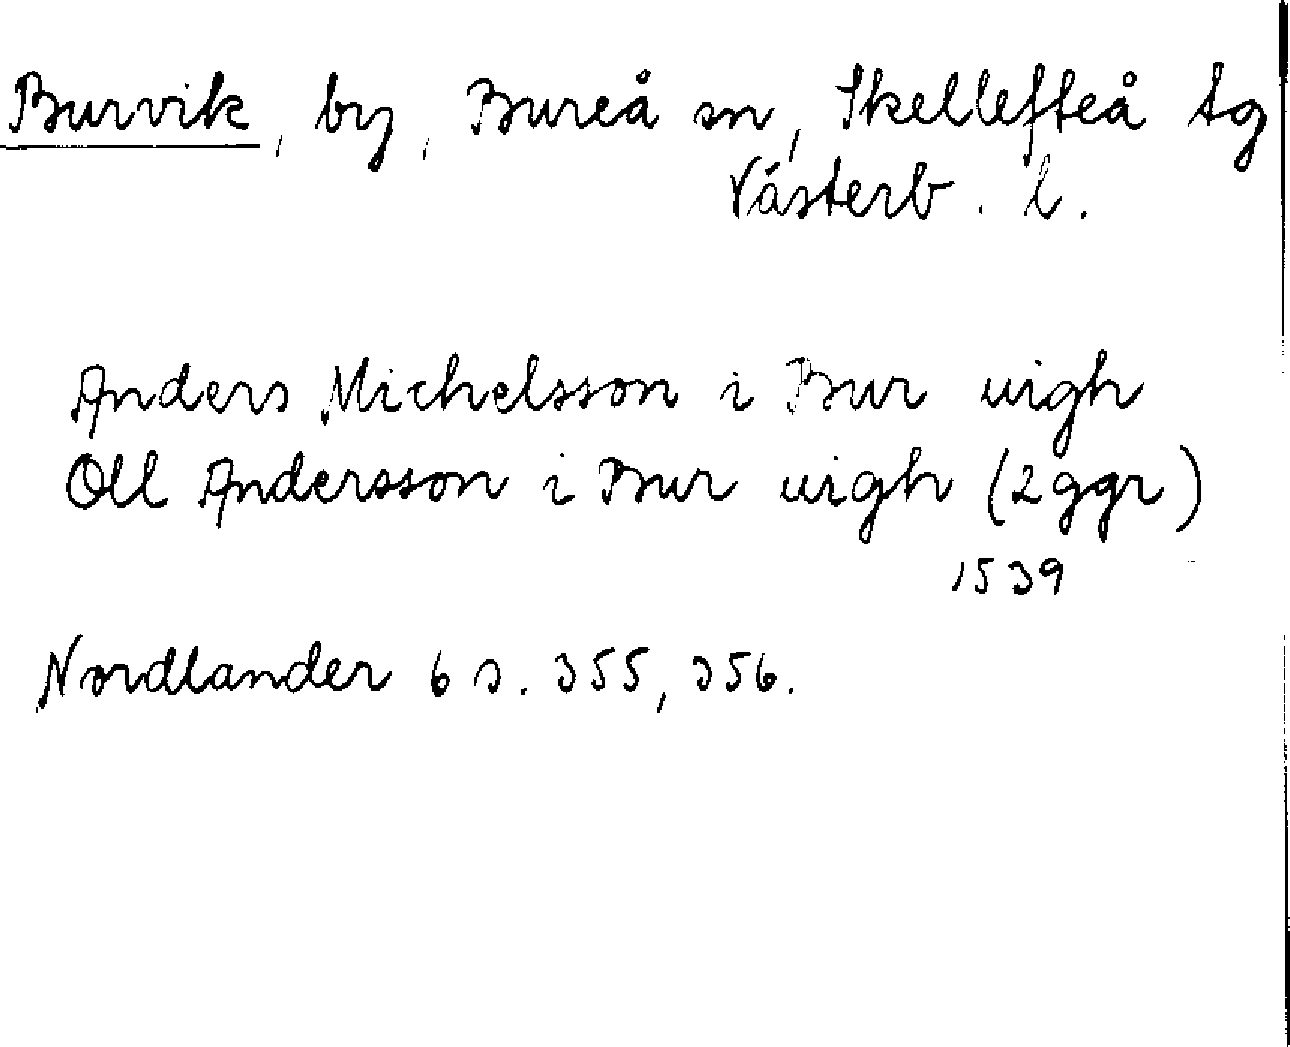 Burvik, by, Bureå sn, Skellefteå tg
Västerb. l.
Anders Michelsson i Bur uigh
Oll Andersson i Bur uigh (2 ggr)
1539
Nordlander 6 s. 355, 356.